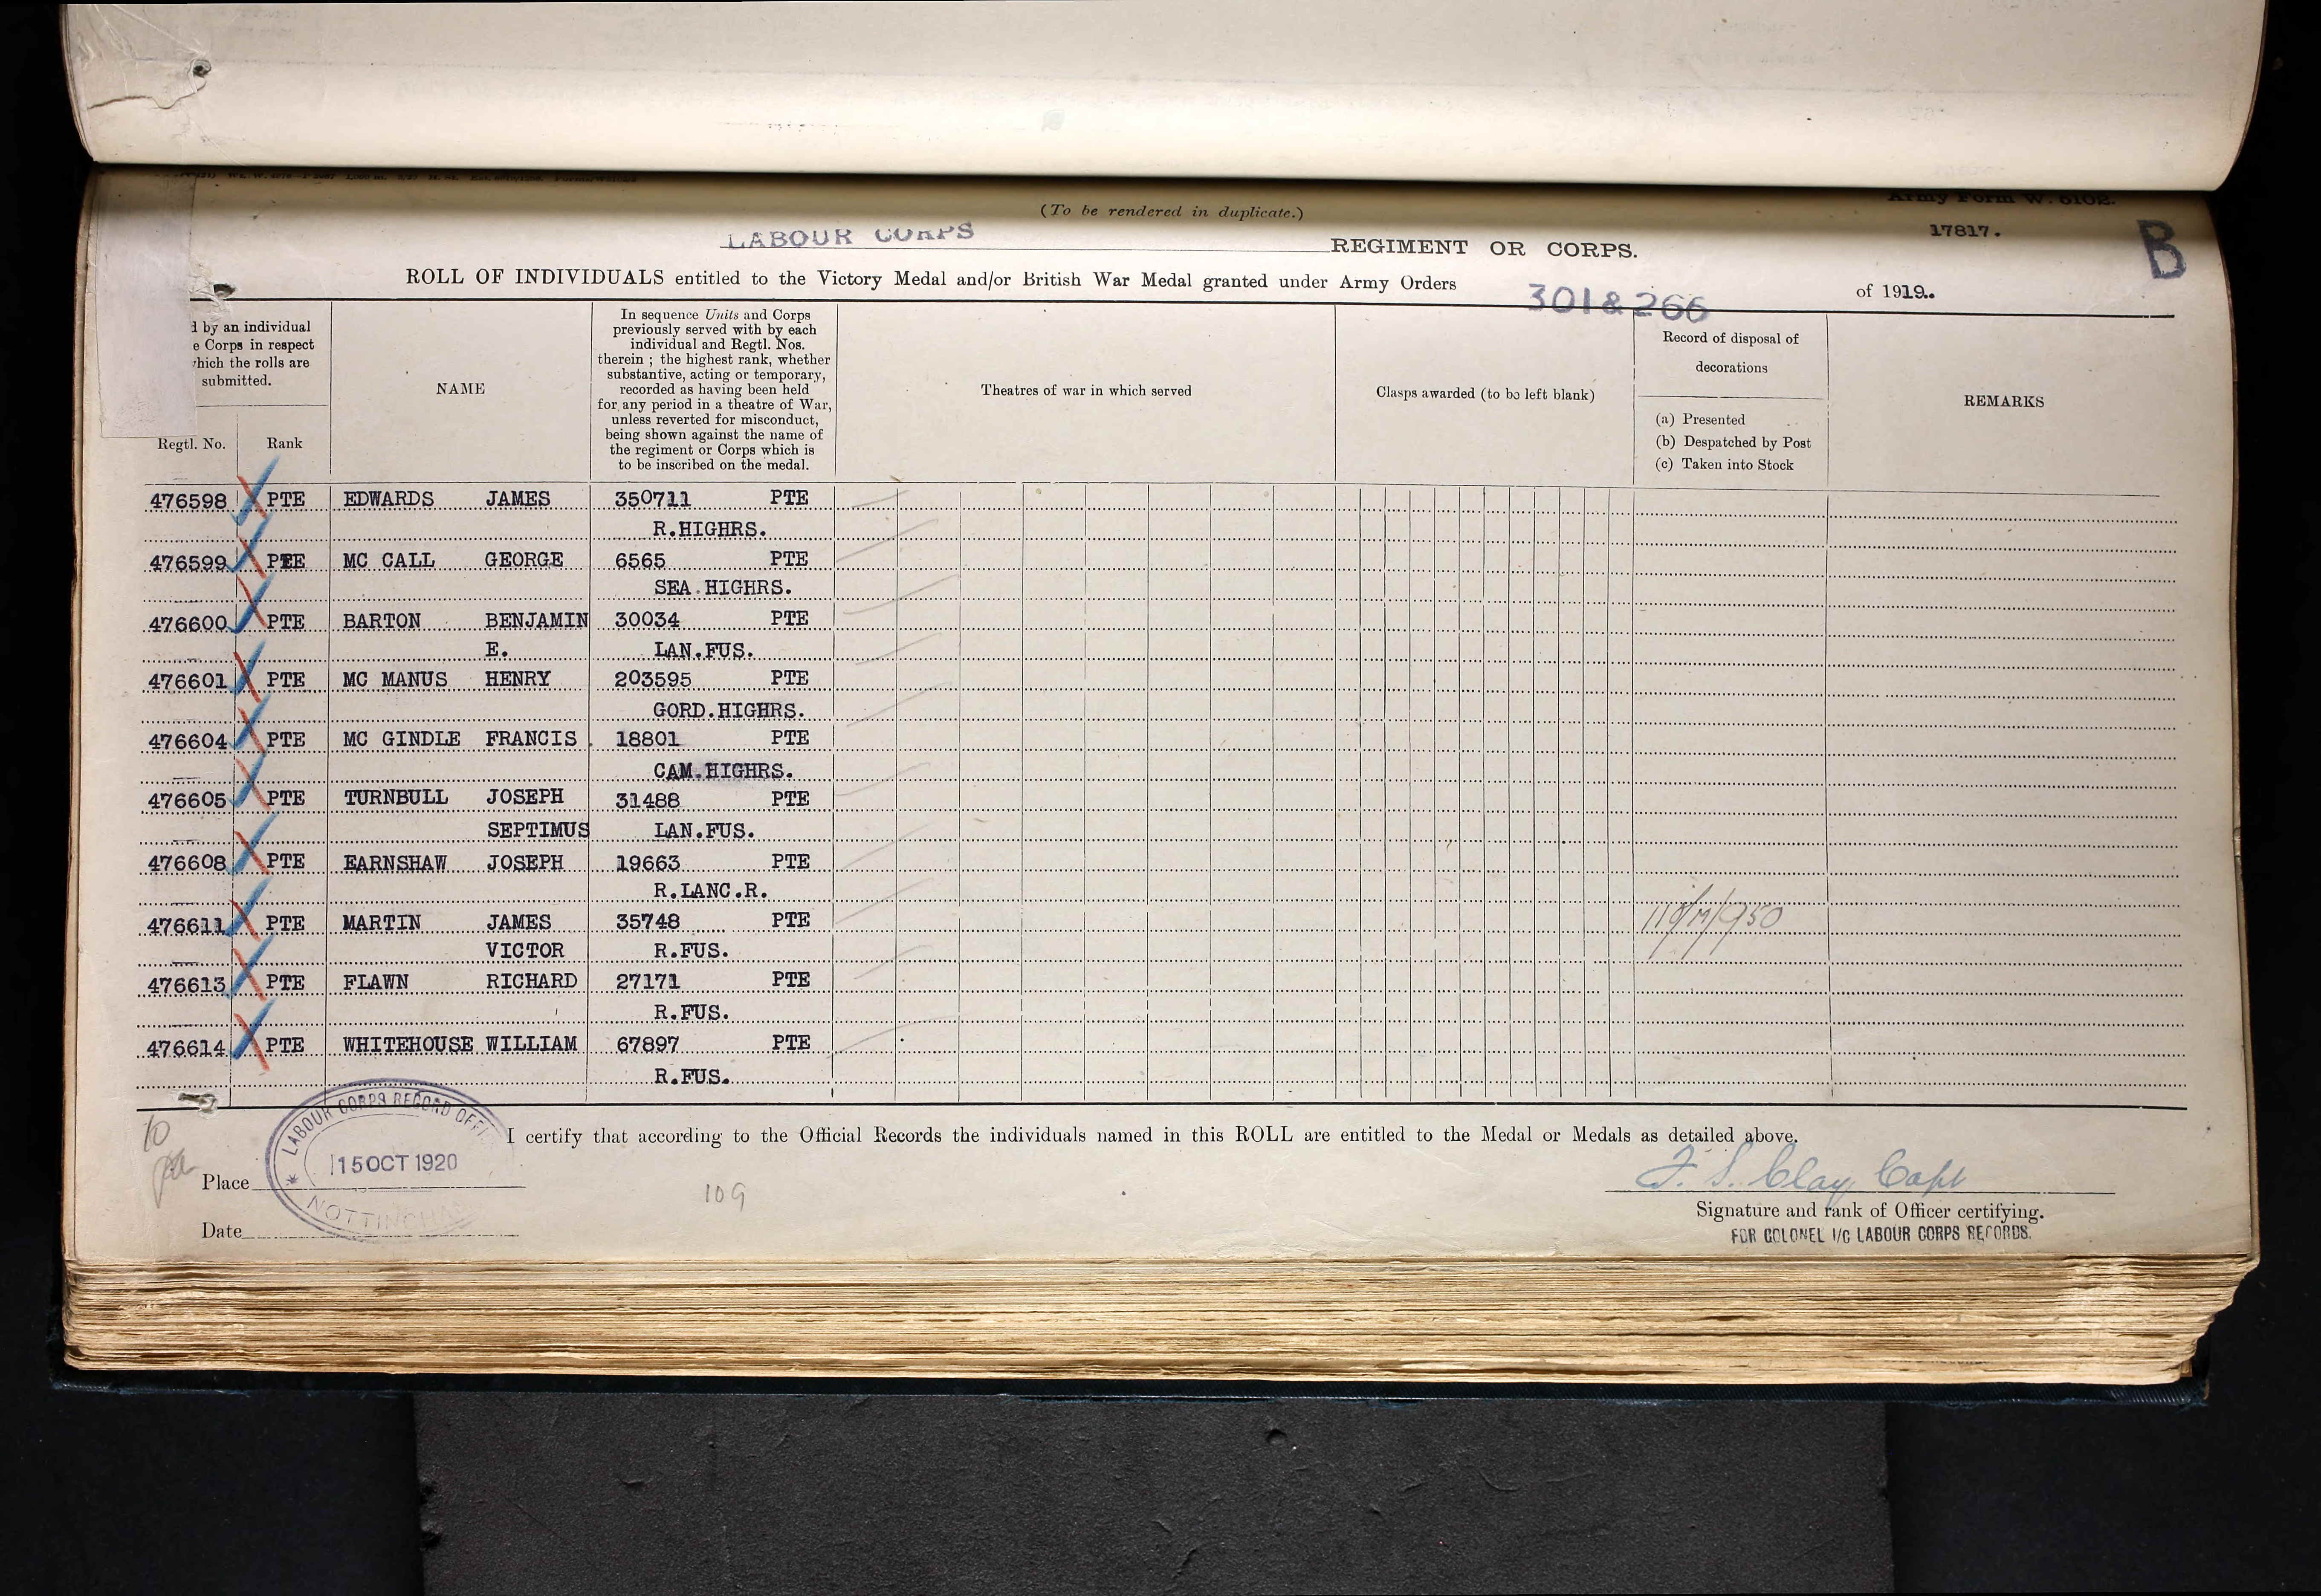 (To be rendered in duplicate.)
Army Form W. 5102.
17817.
B
LABOUR CORPS REGIMENT OR CORPS.
ROLL OF INDIVIDUALS entitled to the Victory Medal and/or British War Medal granted under Army Orders 301 & 266 of 1919..
d by an individual
e Corps in respect
which the rolls are
submitted.
Regtl. No. Rank
NAME
In sequence Units and Corps
previously served with by each
individual and Regtl. Nos.
therein ; the highest rank, whether
substantive, acting or temporary,
recorded as having been held
for any period in a theatre of War,
unless reverted for misconduct,
being shown against the name of
the regiment or Corps which is
to be inscribed on the medal.
Theatres of war in which served
Clasps awarded (to be left blank)
Record of disposal of
decorations
(a) Presented
(b) Despatched by Post
(c) Taken into Stock
REMARKS
476598 PTE EDWARDS JAMES 350711 PTE
R.HIGHRS.
476599 PTE MC CALL GEORGE 6565 PTE
SEA.HIGHRS.
476600 PTE BARTON BENJAMIN 30034 PTE
E. LAN.FUS.
476601 PTE MC MANUS HENRY 203595 PTE
GORD.HIGHRS.
476604 PTE MC GINDLE FRANCIS 18801 PTE
CAM.HIGHRS.
476605 PTE TURNBULL JOSEPH 31488 PTE
SEPTIMUS LAN.FUS.
476608 PTE EARNSHAW JOSEPH 19663 PTE
R.LANC.R.
476611 PTE MARTIN JAMES 35748 PTE
VICTOR R.FUS.
476613 PTE FLAWN RICHARD 27171 PTE
R.FUS.
476614 PTE WHITEHOUSE WILLIAM 67897 PTE
R.FUS.
10
I certify that according to the Official Records the individuals named in this ROLL are entitled to the Medal or Medals as detailed above.
LABOUR CORPS RECORD OFFI
15 OCT 1920
NOTTINGHA
Place
Date
109
F. S. Clay, Capt
Signature and rank of Officer certifying.
FOR COLONEL I/C LABOUR CORPS RECORDS.